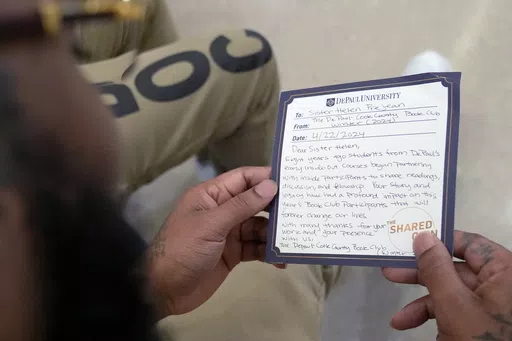 DOC
DEPAUL UNIVERSITY
To: Sister Helen Prejean
From: The DePaul Cook County Book Club
Winter (2024)
Date: 4/22/2024
Dear Sister Helen,
Eight years ago students from DePaul's
early Inside Out Courses began partnering
with inside participants to share readings,
discussion, and fellowship. Your story and
legacy have had a profound impact on this
year's Book Club Participants that will
forever change our lives.
With many thanks for your
work and your presence
with us!
The DePaul Cook County Book Club
THE
SHARED